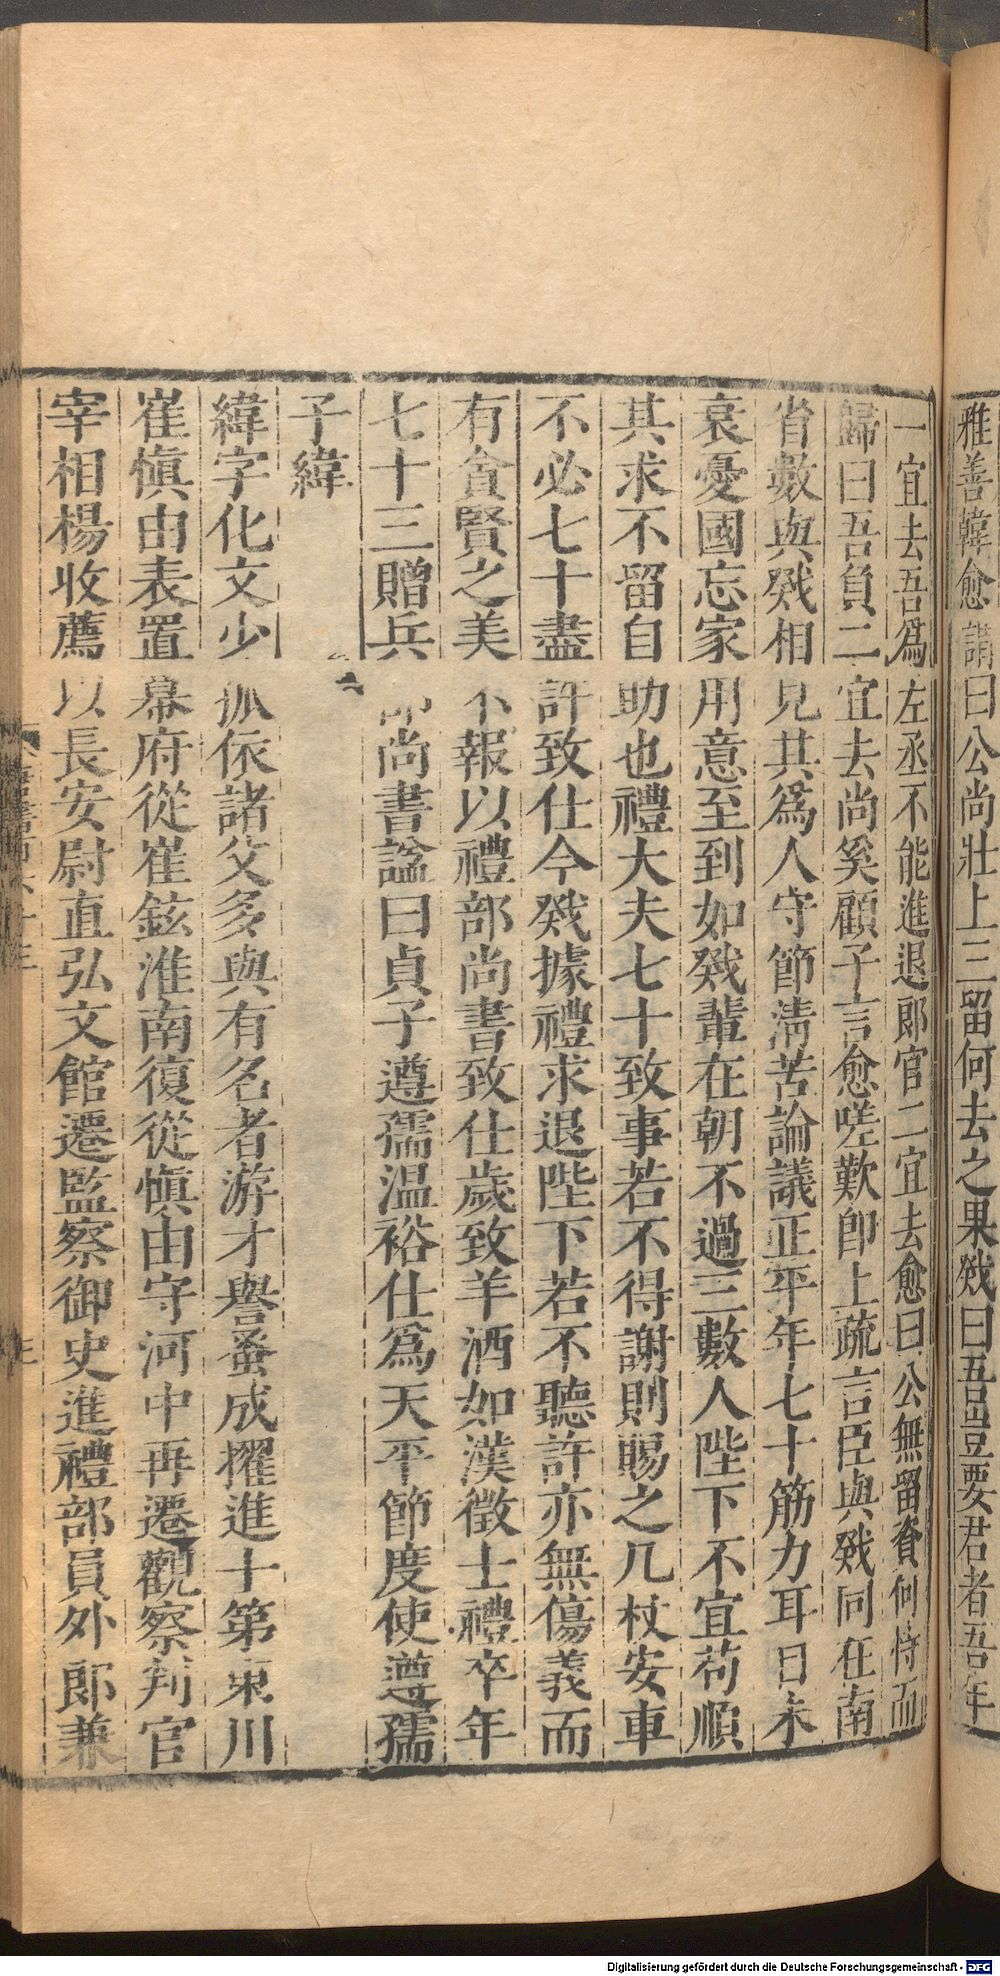 雅善韓愈謂曰公尚壯上三留何去之果戣曰吾豈要君者吾年
一宜去吾爲左丞不能進退郎官二宜去愈曰公無留資何恃而
歸曰吾負二宜去尚奚顧子言愈嗟歎卽上疏言臣與戣同在南
省數與戣相見其爲人守節淸苦論議正平年七十筋力耳目未
衰憂國忘家用意至到如戣輩在朝不過三數人陛下不宜苟順
其求不留自助也禮大夫七十致事若不得謝則賜之几杖安車
不必七十盡許致仕今戣據禮求退陛下若不聽許亦無傷義而
有貪賢之美不報以禮部尚書致仕歲致羊酒如漢徵士禮卒年
七十三贈兵部尚書諡曰貞子遵孺温裕仕爲天平節度使遵孺
子緯
緯字化文少孤依諸父多與有名者游才譽蚤成擢進士第東川
崔愼由表置幕府從崔鉉淮南復從愼由守河中再遷觀察判官
宰相楊收薦以長安尉直弘文館遷監察御史進禮部員外郎兼
Digitalisierung gefördert durch die Deutsche Forschungsgemeinschaft - DFG